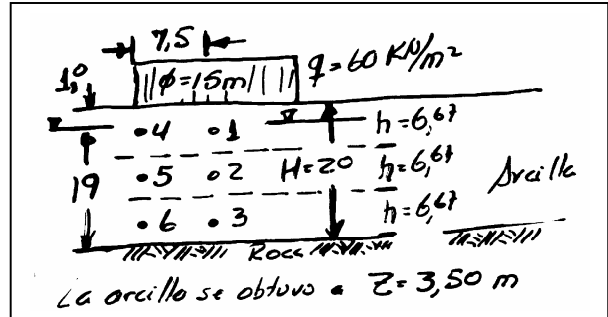 7,5
q=60 KN/m²
1,0
φ=15m
•4 •1 h=6,67
19 •5 •2 H=20 h=6,67 Arcilla
•6 •3 h=6,67
Roca
La arcilla se obtuvo a Z=3,50 m